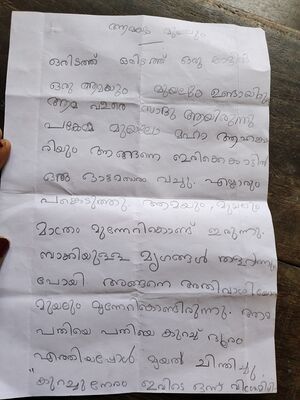 ആമയും മുയലും
ഒരിടത്ത് ഒരിടത്ത് ഒരു കാട്ടിൽ
ഒരു ആമയും മുയലും ഉണ്ടായിരു
ആമ വളരെ സാധു ആയിരുന്നു
പക്ഷേ മുയലോ മഹാ അഹങ്കാ
രിയും അങ്ങനെ ഒരിക്കെ കാട്ടിൽ
ഒരു ഓട്ടമത്സരം വച്ചു. എല്ലാവരും
പങ്കെടുത്തു. ആമയും, മുയലും
മാത്രം മുന്നേറികൊണ്ട് ഇരുന്നു.
ബാക്കിയുള്ള മൃഗങ്ങൾ തളർന്നു
പോയി അങ്ങനെ അതിവാശിയോ
മുയലും മുന്നേറികൊണ്ടിരുന്നു. ആമ
പതിയെ പതിയെ കുറച്ച് ദൂരം
എത്തിയപ്പോൾ മുയൽ ചിന്തിച്ചു.
"കുറച്ചുനേരം ഇവിടെ ഒന്ന് വിശ്രമി